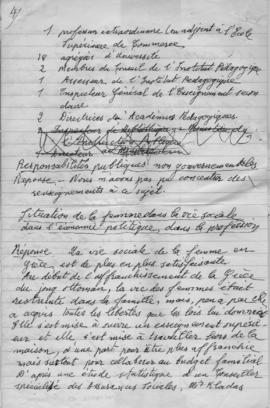 4/
1 professeur extraordinaire (un adjoint à l'Ecole
Supérieure de Commerce
18 agrégés d'Université
2 Membres du Conseil de l'Institut Pédagogique
1 Assesseur de l'Institut Pédagogique
1 Inspecteur Général de l'Enseignement secon
daire
2 Directrices des Académies Pédagogiques.
2
Responsabilités publiques non gouvernementales
Réponse - Nous n'avons pas pu concentrer des
renseignements à ce sujet.
Situation de la femme dans la vie sociale
dans l'économie politique, dans la profession
Réponse La vie sociale de la femme en
Grèce est de plus en plus satisfaisante
Au début de l'affranchissement de la Grèce
du joug ottoman, la vie des femmes était
restreinte dans la famille, mais, peu à peu elle
a acquis toutes les libertés que les lois lui donnent
Elle s'est mise à suivre un enseignement supéri
eur et elle s'est mise à travailler hors de la
maison, d'une part pour être plus affranchie
mais surtout pour collaborer au budget familial
D'après une étude statistique d'un Conseiller
spécialisé des Assurances Sociales, Mr Kladas